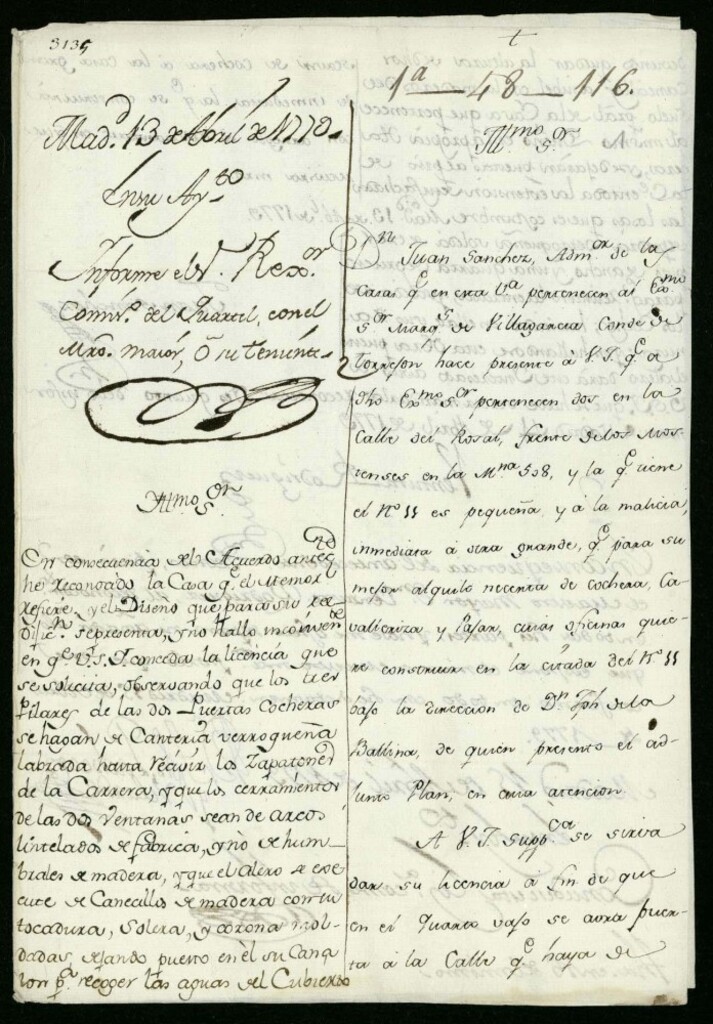 3135
t
1ª — 48 — 116.
Madd. 13 de Abril de 1778.
En su Ayto
Informe el Sr. Rexor
Comisº. del Quartel, con el
Mro. maior, ó su teniente
Illmo Sor
En consecuencia del Acuerdo antecedte
he reconocido la Casa q. el Memorl
refiere, y el Diseño que para su ree-
dificn. se presenta, y no hallo inconven
en qe V.S.I. conceda la licencia que
se solicita, observando que los tres
Pilares de las dos Puertas Cocheras
se hagan de Canteria verroqueña
labrada hasta recivir los Zapatones
de la Carrera, y que los cerramientos
de las dos Ventanas sean de arcos
lintelados de fabrica, y no de hum-
brales de madera, y que el Alero se exe
cute de Canecillos de madera con su
tocadura, Solera, y corona mol-
dadas, dejando puesto en él su Cana
lon pª. recoger las aguas del Cubierto
Illmo Sor
Dn Juan Sanchez, Admor de las
Casas qe en esta Vª pertenecen al Exmo
Sor Marqs de Villagarcia, Conde de
Torrejon hace presente á V.I. qe a
dho Exmo Sor pertenecen dos en la
Calle del Rosal, frente de los Mos-
tenses en la Mna 508, y la qe tiene
el Nº 11 es pequeña, y á la malicia,
inmediata á otra grande, qe para su
mejor alquilo necesita de cochera, Ca-
valleriza y Pajar, cuias oficinas quie-
re construir en la citada del Nº 11
bajo la direccion de Dn Jph de la
Ballina, de quien presento el ad-
junto Plan, en cuia atencion
A V.I. suppca se sirva
dar su licencia á fin de que
en el Quarto vajo se avra puer-
ta á la Calle qe haya de